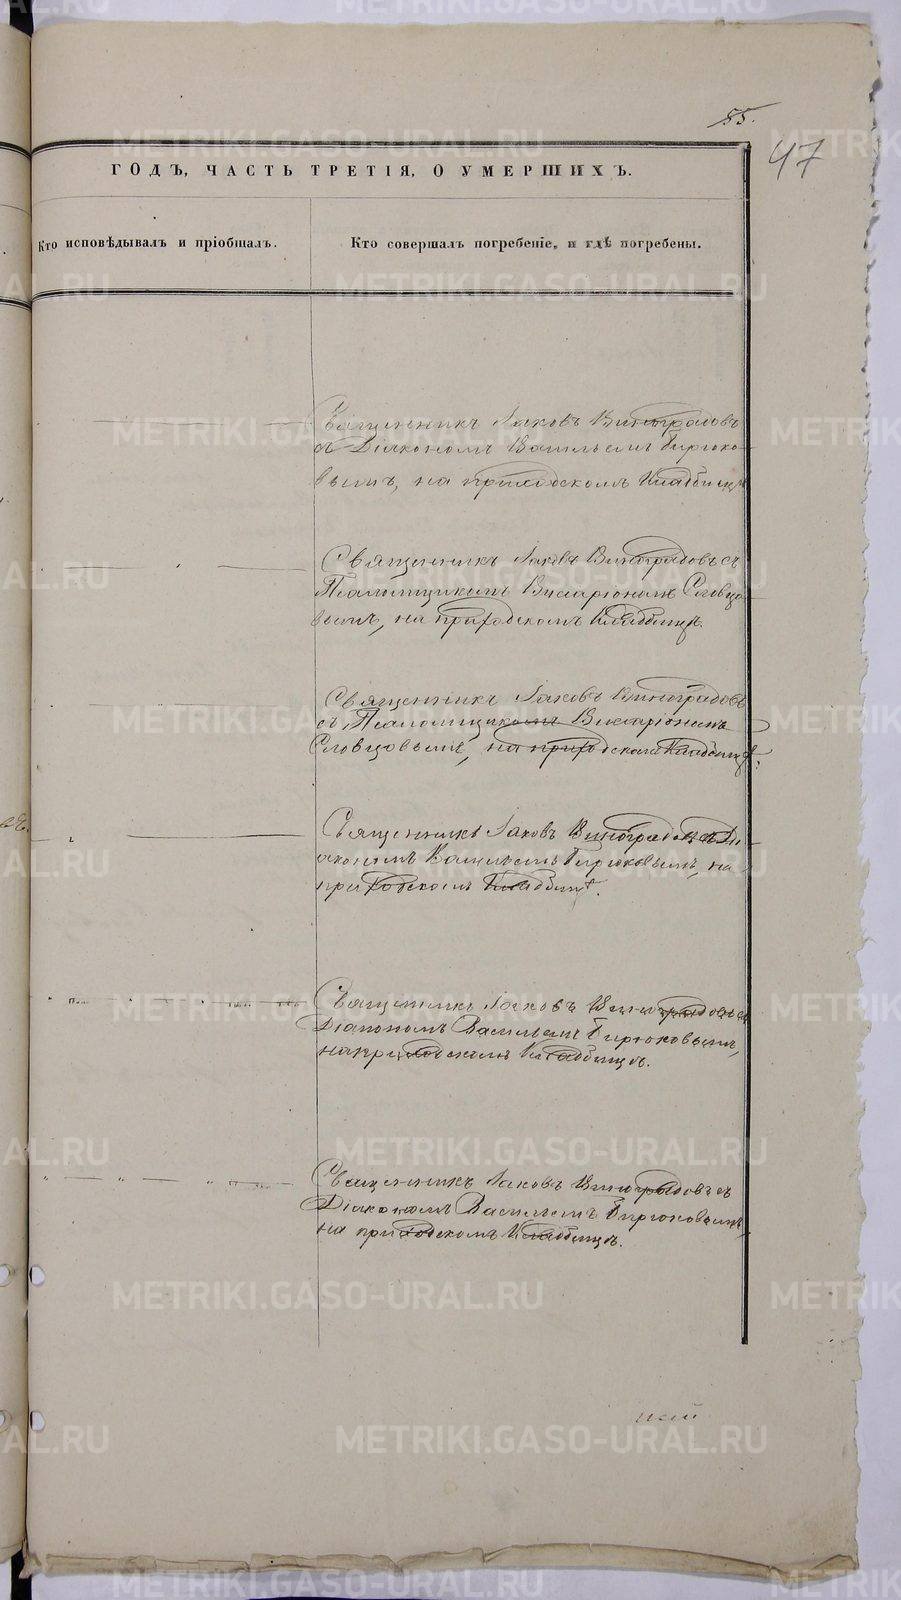 55.
47
ГОДЪ, ЧАСТЬ ТРЕТІЯ, О УМЕРШИХЪ.
Кто исповѣдывалъ и пріобщалъ.
Кто совершалъ погребеніе, и гдѣ погребены.
Священникъ Іаковъ Виноградовъ
съ Діакономъ Васильемъ Бирюко-
вымъ, на приходскомъ кладбищѣ
Священникъ Іаковъ Виноградовъ съ
Псаломщикомъ Виссаріономъ Словцо-
вымъ, на приходскомъ кладбищѣ.
Священникъ Іаковъ Виноградовъ
съ Псаломщикомъ Виссаріономъ
Словцовымъ, на приходскомъ кладбищѣ.
Священникъ Іаковъ Виноградовъ съ Ді-
акономъ Васильемъ Бирюковымъ, на
приходскомъ кладбищѣ.
Священникъ Іаковъ Виноградовъ съ
Діакономъ Васильемъ Бирюковымъ,
на приходскомъ кладбищѣ.
Священникъ Іаковъ Виноградовъ съ
Діакономъ Васильемъ Бирюковымъ,
на приходскомъ кладбищѣ.
METRIKI.GASO-URAL.RU